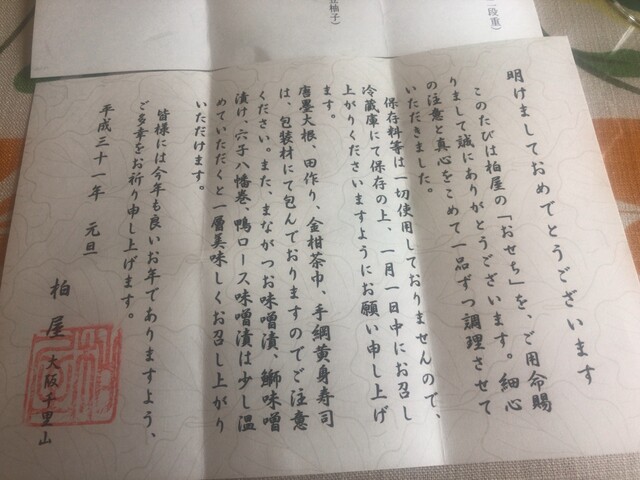 二段重)
立柚子)
明けましておめでとうございます
このたびは柏屋の「おせち」を、ご用命賜
りまして誠にありがとうございます。細心
の注意と真心をこめて一品ずつ調理させて
いただきました。
保存料等は一切使用しておりませんので、
冷蔵庫にて保存の上、一月一日中にお召し
上がりくださいますようにお願い申し上げ
ます。
唐墨大根、田作り、金柑茶巾、手綱黄身寿司
は、包装材にて包んでおりますのでご注意
ください。また、まながつお味噌漬、鰤味噌
漬け、穴子八幡巻、鴨ロース味噌漬は少し温
めていただくと一層美味しくお召し上がり
いただけます。
皆様には今年も良いお年でありますよう、
ご多幸をお祈り申し上げます。
平成三十一年 元旦
柏屋 大阪千里山